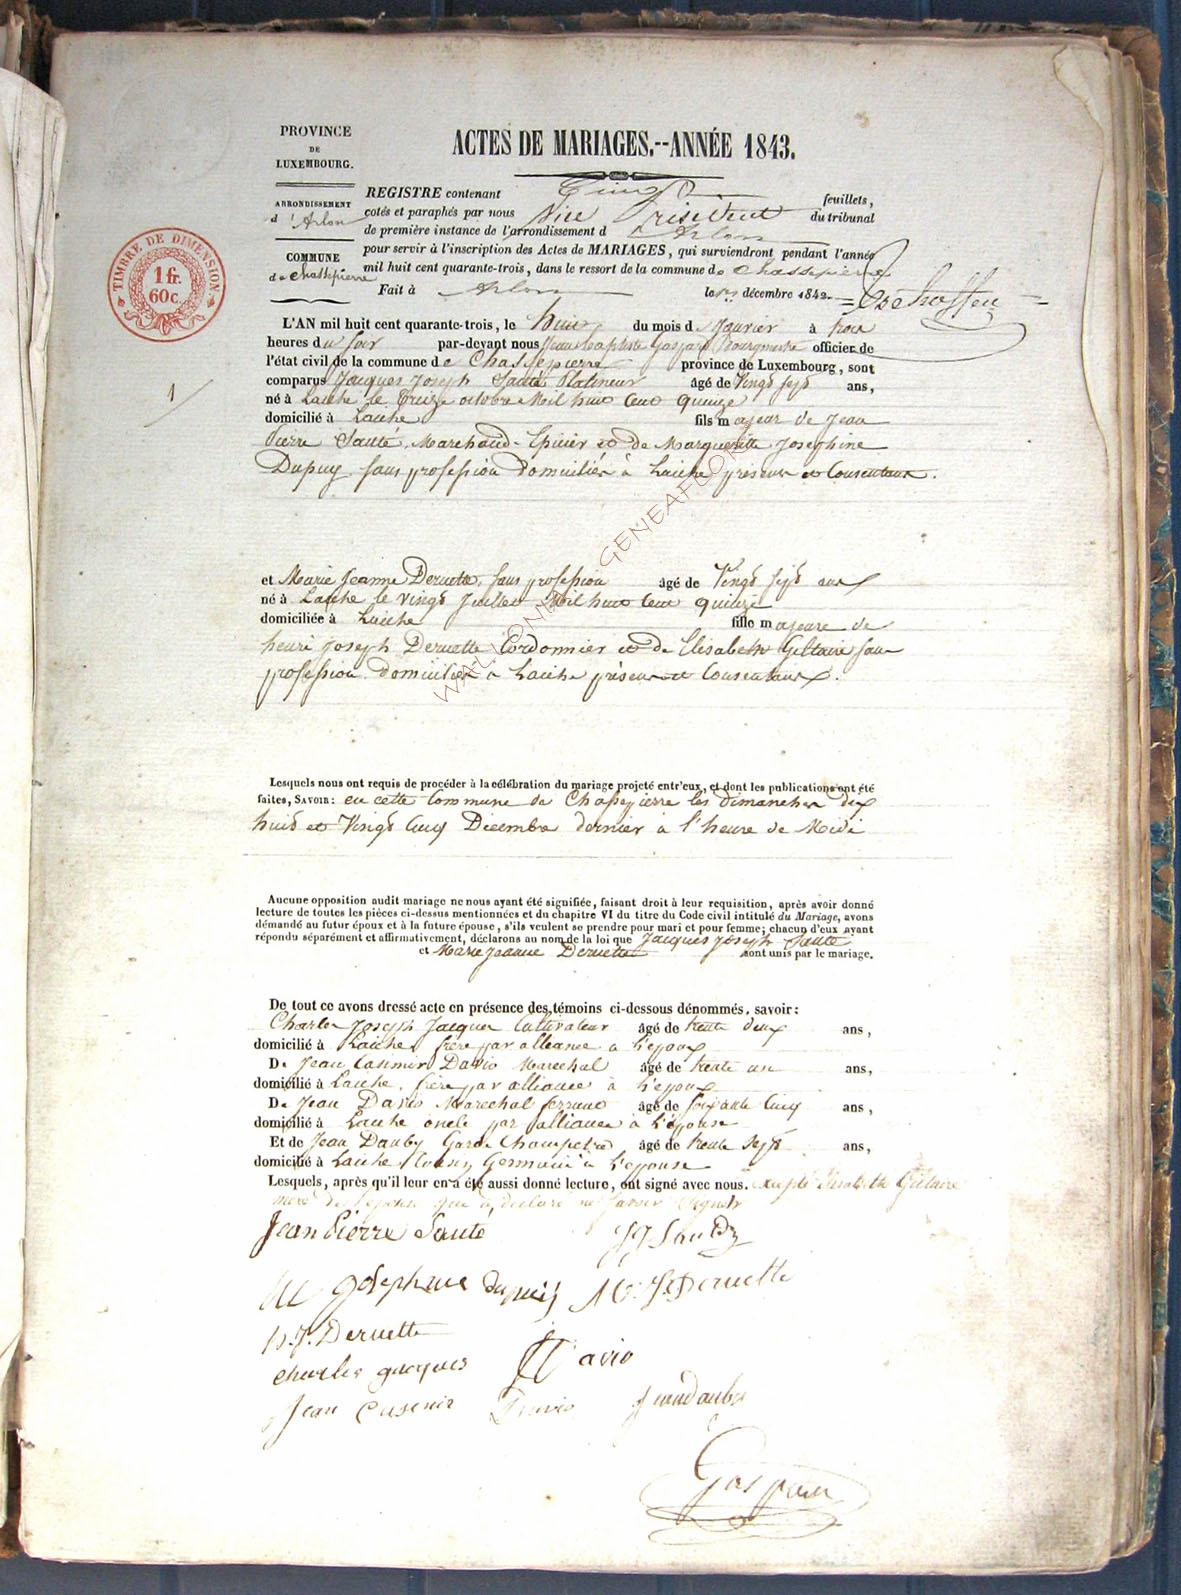 PROVINCE
DE
LUXEMBOURG.
ARRONDISSEMENT
d'Arlon
COMMUNE
de Chassepierre
TIMBRE DE DIMENSION
1 fr.
60 c.
ACTES DE MARIAGES.--ANNÉE 1843.
REGISTRE contenant Cinq feuillets,
cotés et paraphés par nous Vice Président du tribunal
de première instance de l'arrondissement d Arlon
pour servir à l'inscription des Actes de MARIAGES, qui surviendront pendant l'année
mil huit cent quarante-trois, dans le ressort de la commune de Chassepierre
Fait à Arlon le décembre 1842.
1
L'AN mil huit cent quarante-trois, le huit du mois de Janvier à trois
heures du soir par-devant nous Jean Baptiste Gaspard Bourgmestre officier de
l'état civil de la commune de Chassepierre province de Luxembourg, sont
comparus Jacques Joseph Sauté Platineur âgé de Vingt sept ans,
né à Laiche le treize octobre Mil huit Cent quinze
domicilié à Laiche fils majeur de Jean
Pierre Sauté, Marchand-Epicier et de Margueritte Josephine
Dupuy, sans profession domiciliés à Laiche présens et Consentans.
et Marie Jeanne Deruette, sans profession âgé de Vingt sept ans
né à Laiche le vingt Juillet Mil huit Cent quinze
domiciliée à Laiche fille majeure de
henri Joseph Deruette Cordonnier et de Elisabeth Giltaire sans
profession domiciliés à Laiche présens et Consentans.
WALLONIE GENEAFLORE
Lesquels nous ont requis de procéder à la célébration du mariage projeté entr'eux, et dont les publications ont été
faites, SAVOIR: en cette Commune de Chassepierre les dimanches dix
huit et Vingt Cinq Décembre dernier à l'heure de Midi
Aucune opposition audit mariage ne nous ayant été signifiée, faisant droit à leur requisition, après avoir donné
lecture de toutes les pièces ci-dessus mentionnées et du chapitre VI du titre du Code civil intitulé du Mariage, avons
démandé au futur époux et à la future épouse, s'ils veulent se prendre pour mari et pour femme; chacun d'eux ayant
répondu séparément et affirmativement, déclarons au nom de la loi que Jacques Joseph Sauté
et Marie Jeanne Deruette sont unis par le mariage.
De tout ce avons dressé acte en présence des témoins ci-dessous dénommés, savoir:
Charles Joseph Jacques Cultivateur âgé de trente deux ans,
domicilié à Laiche, frère par alliance à l'epoux
De Jean Casimir Davio Marechal âgé de trente un ans,
domicilié à Laiche, frère par alliance à l'epoux
De Jean Davio Marechal ferrant âgé de soixante Cinq ans,
domicilié à Laiche oncle par alliance à l'épouse
Et de Jean Dauby Garde Champetre âgé de trente Sept ans,
domicilié à Laiche Cousin Germain à l'epouse
Lesquels, après qu'il leur en a été aussi donné lecture, ont signé avec nous. excepté Elisabeth Giltaire
mère de l'épouse qui a déclaré ne savoir Signer
Jean Pierre Sauté
JJ Sauté
M Josephine dupuis M. J. Deruette
h. J. Deruette
charles jacques J Davio
Jean casimir Davio Jean dauby
Gaspard